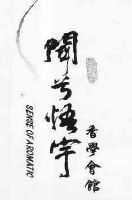 聞兮悟宇
香學會館
SENSE OF AROMATIC